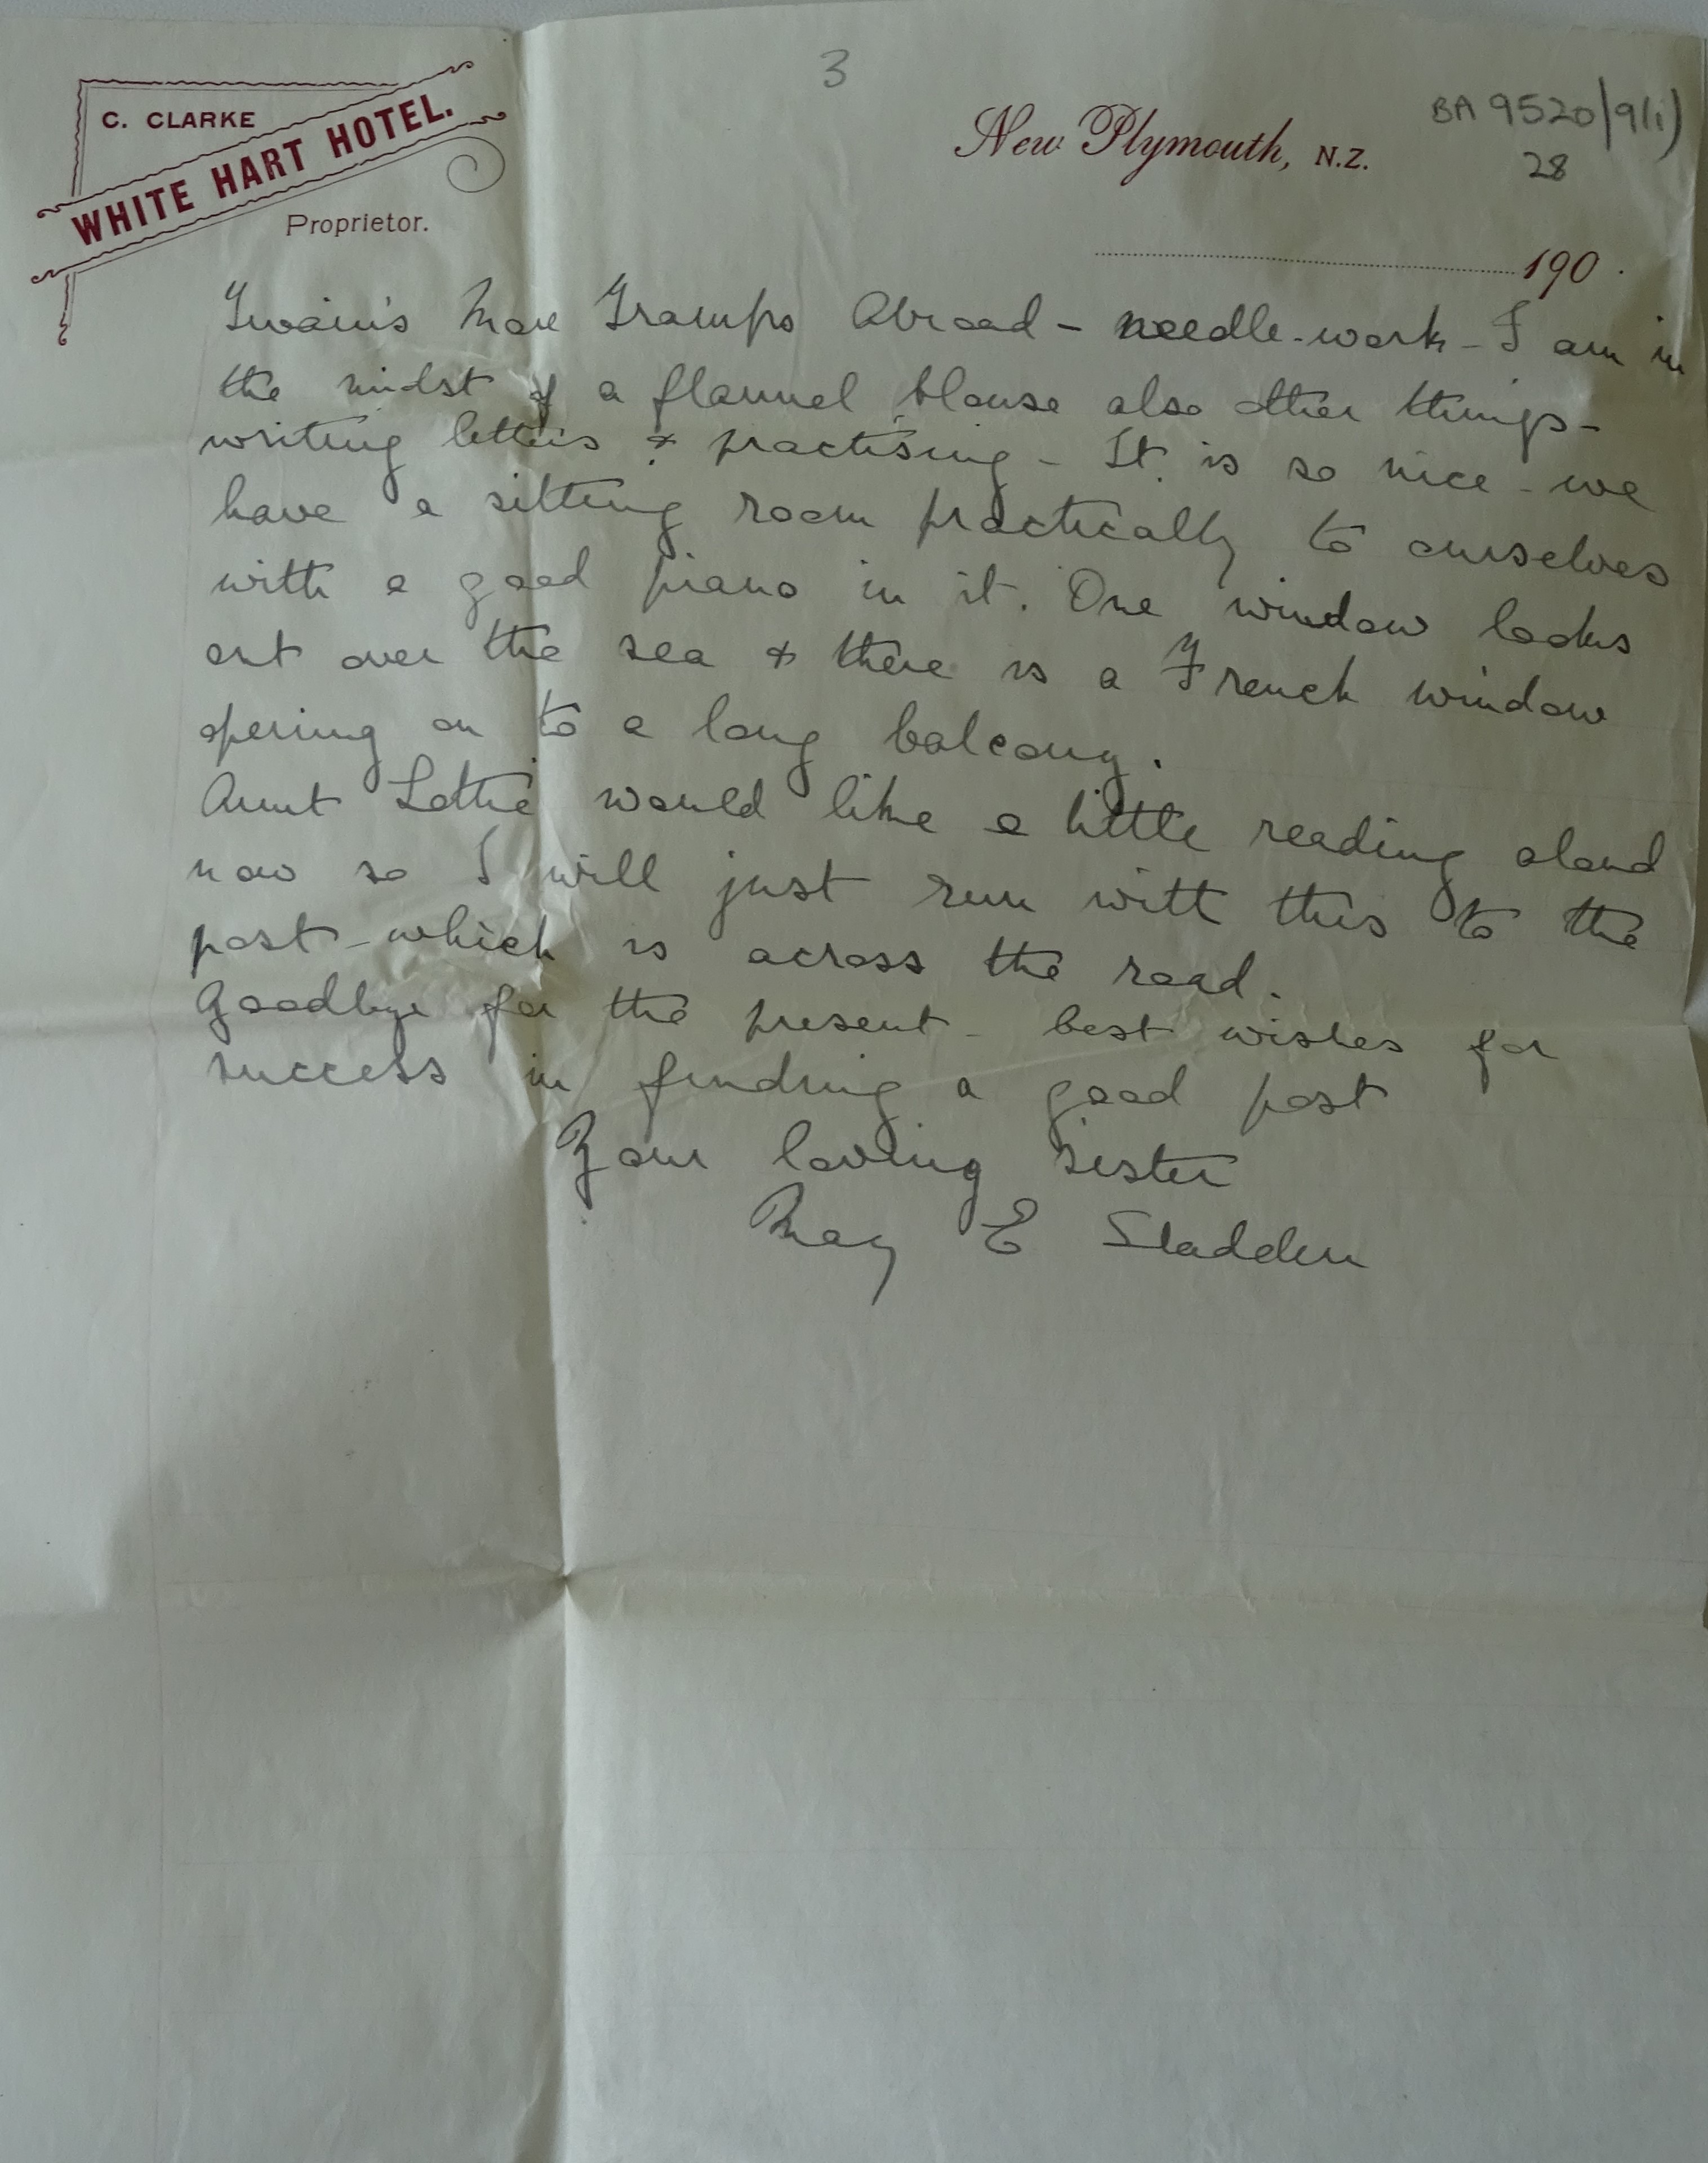 3
BA 9520/9(i)
28
C. CLARKE
WHITE HART HOTEL.
Proprietor.
New Plymouth, N.Z.
190 .
Twain's More Tramps Abroad - needle-work - I am in
the midst of a flannel blouse also other things -
writing letters & practising - It is so nice - we
have a sitting room practically to ourselves
with a good piano in it. One window looks
out over the sea & there is a French window
opening on to a long balcony.
Aunt Lottie would like a little reading aloud
now so I will just run with this to the
post - which is across the road.
Goodbye for the present - best wishes for
success in finding a good post
Your loving sister
May E Sladden